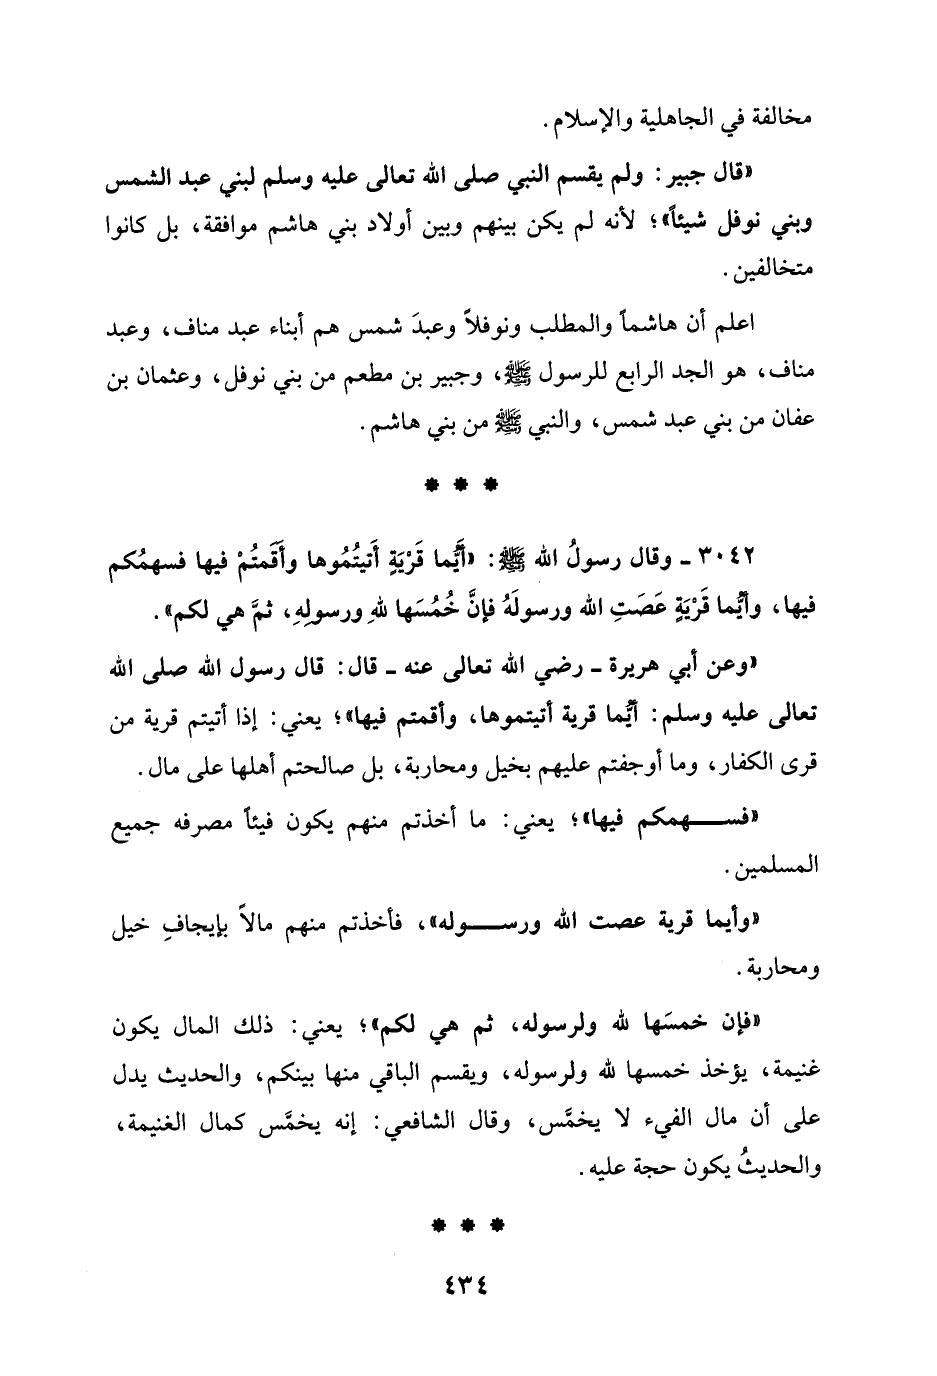 مخالفة في الجاهلية والإسلام.
«قال جبير: ولم يقسم النبي صلى الله تعالى عليه وسلم لبني عبد الشمس
وبني نوفل شيئاً»؛ لأنه لم يكن بينهم وبين أولاد بني هاشم موافقة، بل كانوا
متخالفين.
اعلم أن هاشماً والمطلب ونوفلاً وعبدَ شمس هم أبناء عبد مناف، وعبد
مناف، هو الجد الرابع للرسول ﷺ، وجبير بن مطعم من بني نوفل، وعثمان بن
عفان من بني عبد شمس، والنبي ﷺ من بني هاشم.
* * *
٣٠٤٢ ـ وقال رسولُ الله ﷺ: «أَيُّما قَرْيَةٍ أَتيتُمُوها وأَقَمتُمْ فيها فسهمُكم
فيها، وأيُّما قَرْيَةٍ عَصَتِ الله ورسولَهُ فإنَّ خُمُسَها للهِ ورسولِهِ، ثمَّ هي لكم».
«وعن أبي هريرة ـ رضي الله تعالى عنه ـ قال: قال رسول الله صلى الله
تعالى عليه وسلم: أيُّما قرية أتيتموها، وأقمتم فيها»؛ يعني: إذا أتيتم قرية من
قرى الكفار، وما أوجفتم عليهم بخيل ومحاربة، بل صالحتم أهلها على مال.
«فســـهمكم فيها»؛ يعني: ما أخذتم منهم يكون فيئاً مصرفه جميع
المسلمين.
«وأيما قرية عصت الله ورســـوله»، فأخذتم منهم مالاً بإيجافِ خيل
ومحاربة.
«فإن خمسَها لله ولرسوله، ثم هي لكم»؛ يعني: ذلك المال يكون
غنيمة، يؤخذ خمسها لله ولرسوله، ويقسم الباقي منها بينكم، والحديث يدل
على أن مال الفيء لا يخمَّس، وقال الشافعي: إنه يخمَّس كمال الغنيمة،
والحديثُ يكون حجة عليه.
* * *
٤٣٤